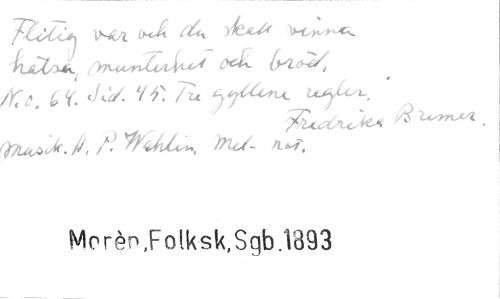 Flitig var och du skall vinna
hälsa, munterhet och bröd.
N.o. 64. Sid. 45. Tre gyllene regler.
Fredrika Bremer.
Musik. A. P. Wahlin. Mel- not.
Morèn,Folksk,Sgb.1893